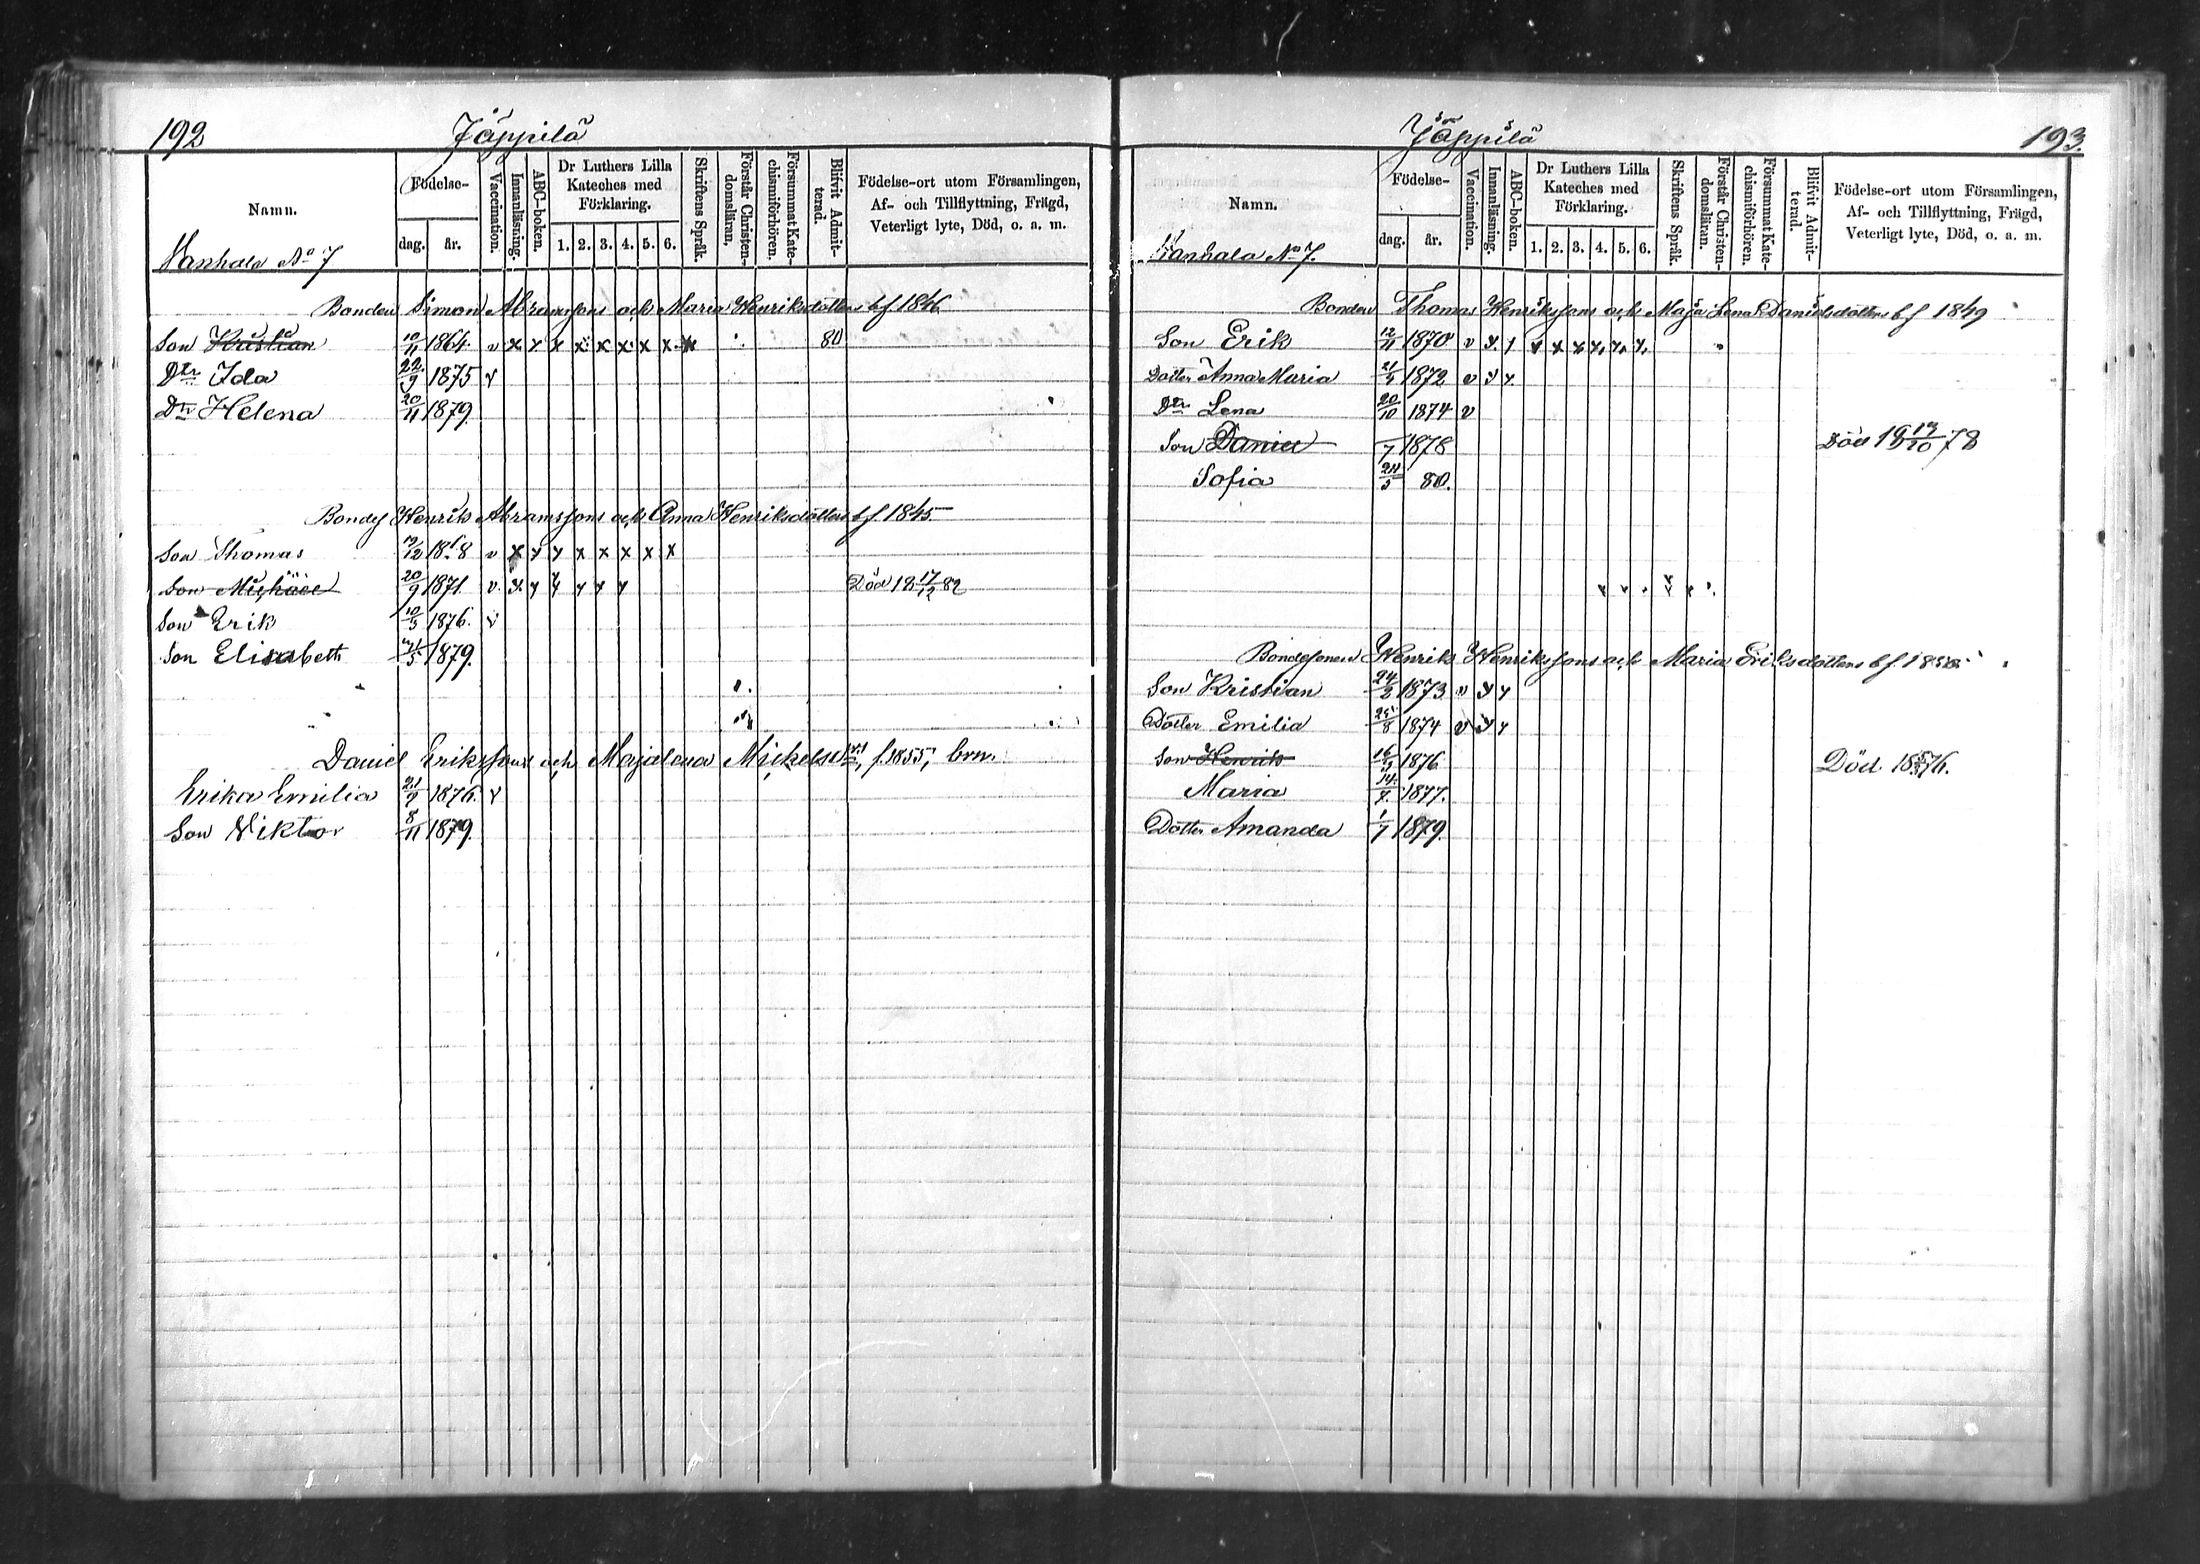 192 Jäppilä
Namn. Födelse- dag. år. Vaccination. Innanläsning. ABC-boken. Dr Luthers Lilla Kateches med Förklaring. 1. 2. 3. 4. 5. 6. Skriftens Språk. Förstår Christendomsläran, Försummat Katechismiförhören. Blifvit Admitterad. Födelse-ort utom Församlingen, Af- och Tillflyttning, Frägd, Veterligt lyte, Död, o. a. m.
Vanhala No 7
Bonden Simon Abramssons och Maria Henriksdotters bf. 1846
Son Kristian 10/11 1864. v x x x x x x x x x 80
Dtr Ida 22/9 1875 v
Dtr Helena 20/11 1879.
Bondes Henrik Abramssons och Anna Henriksdotters bf. 1845
Son Thomas 19/12 18 8 v x x x x x x x x
Son Michael 20/9 1871. v. x x x x x x Död 18 17/12 82
Son Erik 10/5 1876. v
Son Elisabeth 1879.
Daniel Erikssons och Majalena Mickelsd f. 1855, brn.
Erika Emilia 21/9 1876. v
Son Viktor 8/11 1879.
Jäppilä 193.
Namn. Födelse- dag. år. Vaccination. Innanläsning. ABC-boken. Dr Luthers Lilla Kateches med Förklaring. 1. 2. 3. 4. 5. 6. Skriftens Språk. Förstår Christendomsläran. Försummat Katechismiförhören. Blifvit Admitterad. Födelse-ort utom Församlingen, Af- och Tillflyttning, Frägd, Veterligt lyte, Död, o. a. m.
Vanhala No 7.
Bonden Thomas Henrikssons och Maja Lena Danielsdotters bf 1849
Son Erik 12/11 1870 v x x x x x x x x
Dotter Anna Maria 1872 v x x
Dtr Lena 20/10 1874 v
Son Daniel /7 1878 Död 18 19/10 78
Sofia /5 80.
Bondesonen Henrik Henrikssons och Maria Eriksdotters bf.
Son Kristian 24/2 1873 v x x
Dotter Emilia 25/8 1874 v x x
Son Henrik 1876 Död 18 76.
Maria 14/7. 1877.
Dotter Amanda 1/7 1879.